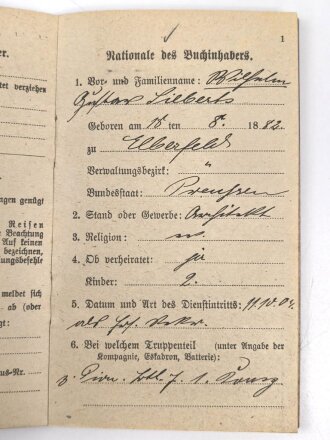 er.
tet verziehen
ungen genügt
Reisen
e Beachtung
Auf keinen
bezeichnen,
lungsbefehle
meldet sich
ab (oder
tragt:
us-Nr.
1
Nationale des Buchinhabers.
1. Vor- und Familienname: Wilhelm
Gustav Sieberts
Geboren am 18 ten 8. 1882.
zu Elberfeld
Verwaltungsbezirk: "
Bundesstaat: Preußen
2. Stand oder Gewerbe: Architekt
3. Religion:
4. Ob verheiratet: ja
Kinder: 2.
5. Datum und Art des Diensteintritts: 11.10.04
als
6. Bei welchem Truppenteil (unter Angabe der
Kompagnie, Eskadron, Batterie):
3. Pion. Btl. 7. 1. Komp